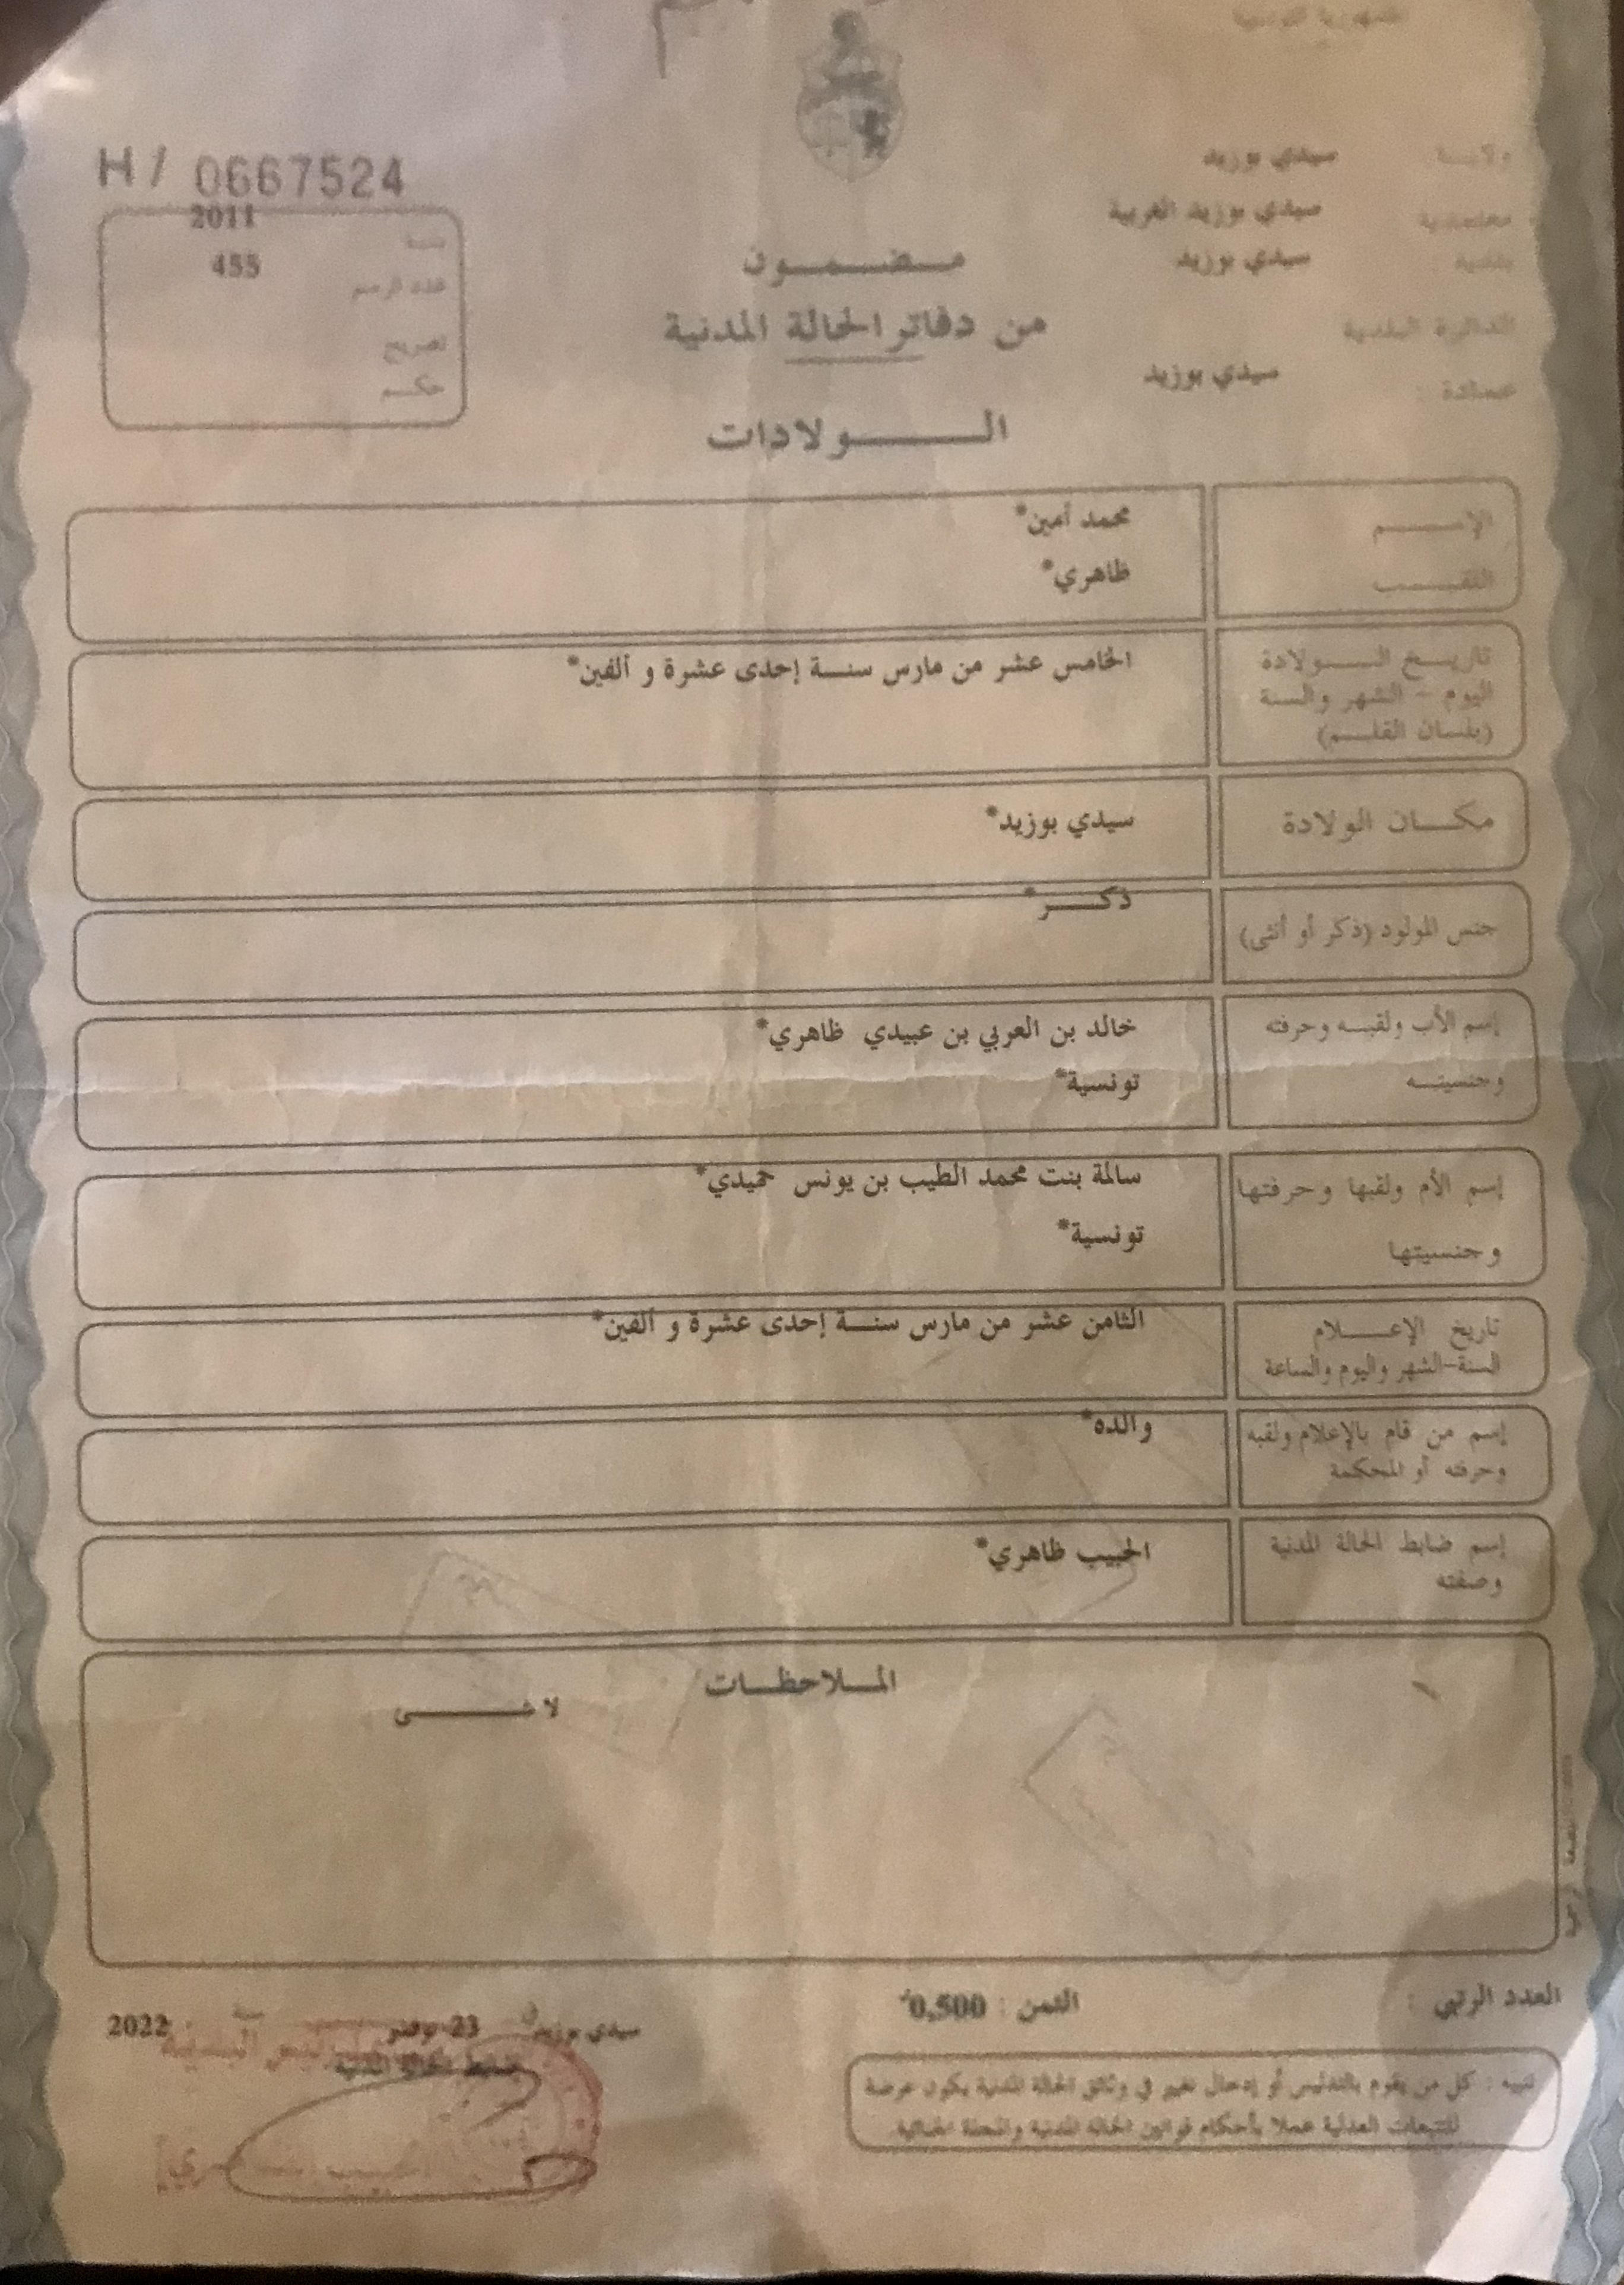 الجمهورية التونسية
ولايـــة : سيدي بوزيد
معتمدية سيدي بوزيد الغربية
بلدية : سيدي بوزيد
الدائرة البلدية
عمادة : سيدي بوزيد
H / 0667524
سنة 2011
عدد الرسم 455
تصريح
حكـــم
مـــضـــمـــون
من دفاتر الحالة المدنية
الـــــولادات
الإســـــم محمد أمين*
اللقـــــب ظاهري*
تاريـــخ الـــــولادة الخامس عشر من مارس سنـــة إحدى عشرة و ألفين*
اليوم - الشهر والسنة
(بلسان القلـــم)
مكـــان الولادة سيدي بوزيد*
جنس المولود (ذكر أو أنثى) ذكـــــر*
إسم الأب ولقبـــه وحرفته خالد بن العربي بن عبيدي ظاهري*
وجنسيتـــه تونسية*
إسم الأم ولقبها وحرفتها سالمة بنت محمد الطيب بن يونس حميدي*
وجنسيتها تونسية*
تاريخ الإعـــــلام الثامن عشر من مارس سنـــة إحدى عشرة و ألفين*
السنة-الشهر واليوم والساعة
إسم من قام بالإعلام ولقبه والده*
وحرفته أو المحكمة
إسم ضابط الحالة المدنية الحبيب ظاهري*
وصفته
المـــلاحظـــات
لا شـــــــى
العدد الرتبي :
الثمن : 0,500
سيدي بوزيد في 23 نوفمبر سنة 2022
ضابط الحالة المدنية
تنبيه : كل من يقوم بالتدليس أو إدخال تغيير في وثائق الحالة المدنية يكون عرضة
للتتبعات العدلية عملا بأحكام قوانين الحالة المدنية والمجلة الجنائية.